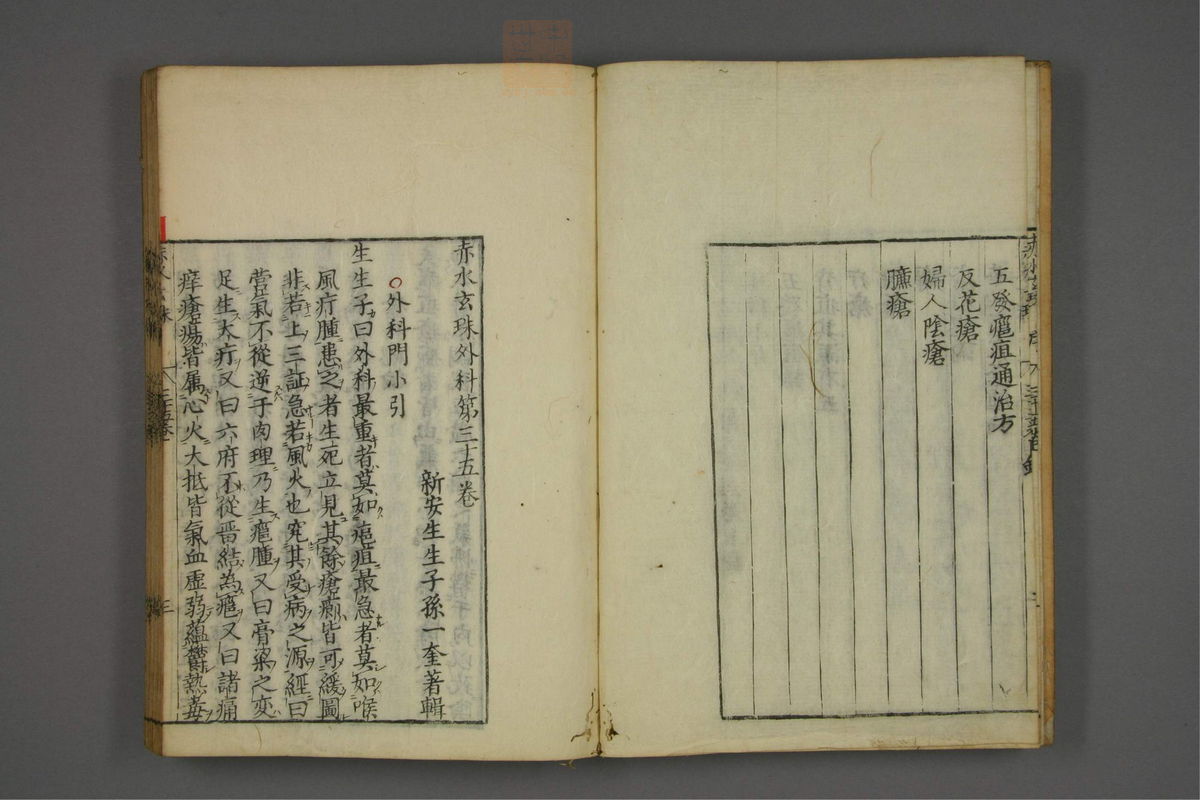 五發癰疽通治方
反花瘡
婦人陰瘡
臁瘡
赤水玄珠外科第三十五卷
新安生生子孫一奎著輯
外科門小引
生生子曰外科最重者莫如癰疽最急者莫如喉
風疔腫患之者生死立見其餘瘡瘌皆可緩圖
非若上三証急若風火也究其受病之源經曰
營氣不從逆于肉理乃生癰腫又曰膏粱之變
足生大疔又曰六府不從晋結為癰又曰諸痛
痒瘡瘍皆属心火大抵皆氣血虛弱蘊欝熱毒